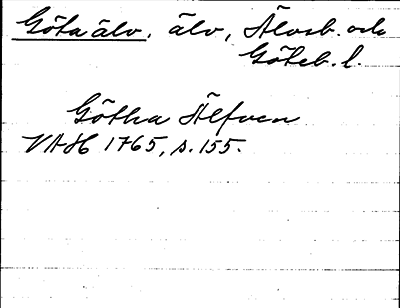 Göta älv. älv, Älvsb. och
Göteb. l.
Götha Älfven
VAH 1765, s. 155.